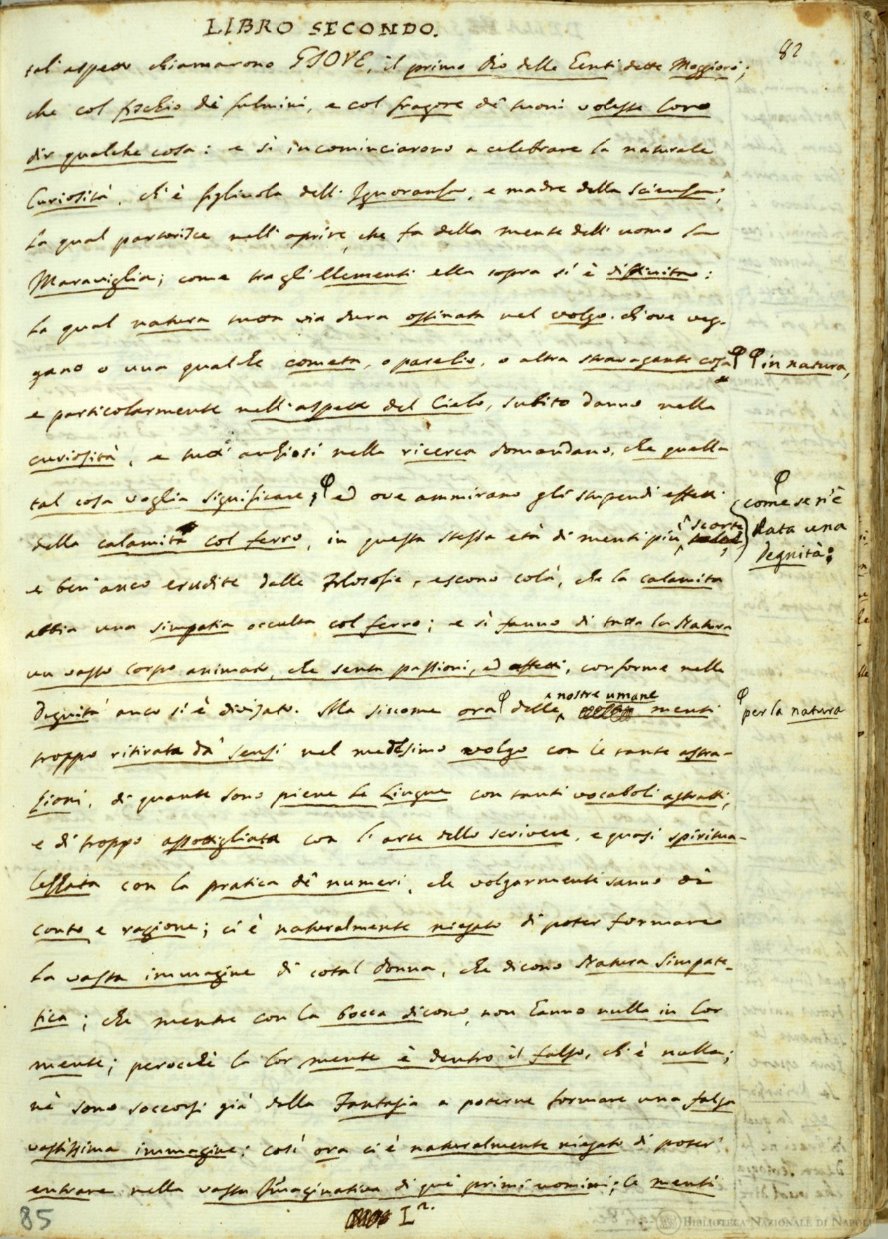 LIBRO SECONDO.
82
tal aspetto chiamarono GIOVE, il primo Dio delle Genti dette Maggiori;
che col fischio de' fulmini, e col fragore de' tuoni volesse loro
dir qualche cosa: e sì incominciarono a celebrare la naturale
Curiosità, ch'è figliuola dell'Ignoranza, e madre della Scienza,
la qual partorisce nell'aprire, che fa della mente dell'uomo la
Maraviglia; come tragli Elementi ella sopra si è diffinita:
la qual natura tutta via dura ostinata nel volgo, ch'ove veg-
gano o una qualche cometa, o parelio, o altra stravagante cosa φ φ in natura,
e particolarmente nell'aspetto del Cielo, subito danno nella
curiosità, e tutti anziosi nella ricerca domandano, che quella
tal cosa voglia significare; φ ed ove ammirano gli stupendi effetti
φ come se n'è
data una
Degnità:
della calamita col ferro, in questa stessa età di menti più scorte
e ben'anco erudite dalle Filosofie, escono colà, che la calamita
abbia una simpatia occulta col ferro; e sì fanno di tutta la Natura
un vasto corpo animato, che senta passioni, ed affetti, conforme nelle
Degnità anco si è divisato. Ma siccome ora φ delle nostre umane menti
φ per la natura
troppo ritirata da' sensi nel medesimo volgo con le tante astra-
zioni, di quante sono piene le Lingue con tanti vocaboli astratti,
e di troppo assottigliata con l'arte dello scrivere, e quasi spiritua-
lezzata con la pratica de' numeri, che volgarmente sanno di
conto e ragione; ci è naturalmente niegato di poter formare
la vasta immagine di cotal donna, che dicono Natura Simpate-
tica; che mentre con la bocca dicono, non hanno nulla in lor
mente; perocchè la lor mente è dentro il falso, ch'è nulla;
nè sono soccorsi già dalla Fantasia a poterne formare una falsa
vastissima immagine; così ora ci è naturalmente niegato di poter'
entrare nella vasta Immaginativa di que' primi uomini; le menti
85
L 2.
BIBLIOTECA NAZIONALE DI NAPOLI